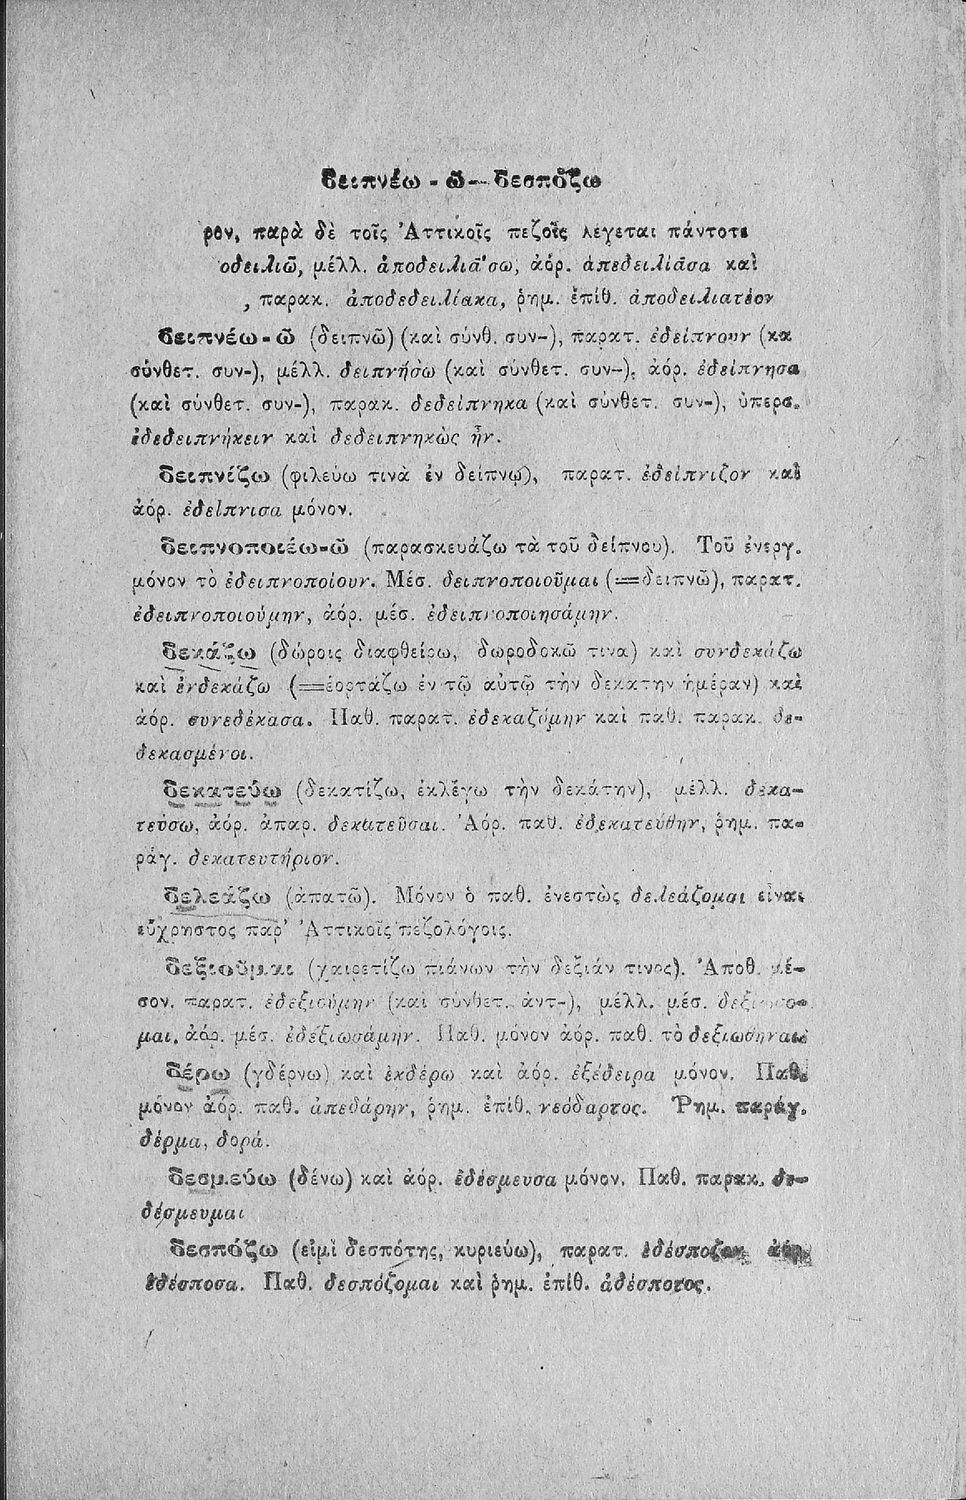 δειπνέω - ῶ — δεσπόζω
ρον, παρὰ δὲ τοῖς Ἀττικοῖς πεζοῖς λέγεται πάντοτε
οδειλιῶ, μέλλ. ἀποδειλιάσω, ἀόρ. ἀπεδειλίασα καὶ
, παρακ. ἀποδεδειλίακα, ῥημ. ἐπίθ. ἀποδειλιατέον
δειπνέω-ῶ (δειπνῶ) (καὶ σύνθ. συν-), παρατ. ἐδείπνουν (κα
σύνθετ. συν-), μέλλ. δειπνήσω (καὶ σύνθετ. συν-), ἀόρ. ἐδείπνησα
(καὶ σύνθετ. συν-), παρακ. δεδείπνηκα (καὶ σύνθετ. συν-), ὑπερσ.
ἐδεδειπνήκειν καὶ δεδειπνηκὼς ἦν.
δειπνίζω (φιλεύω τινὰ ἐν δείπνῳ), παρατ. ἐδείπνιζον καὶ
ἀόρ. ἐδείπνισα μόνον.
δειπνοποιέω-ῶ (παρασκευάζω τὰ τοῦ δείπνου). Τοῦ ἐνεργ.
μόνον τὸ ἐδειπνοποίουν. Μέσ. δειπνοποιοῦμαι (=δειπνῶ), παρατ.
ἐδειπνοποιούμην, ἀόρ. μέσ. ἐδειπνοποιησάμην.
δεκάζω (δώροις διαφθείρω, δωροδοκῶ τινα) καὶ συνδεκάζω
καὶ ἐνδεκάζω (=ἑορτάζω ἐν τῷ αὐτῷ τὴν δεκάτην ἡμέραν) καὶ
ἀόρ. συνεδέκασα. Παθ. παρατ. ἐδεκαζόμην καὶ παθ. παρακ. δε-
δεκασμένοι.
δεκατεύω (δεκατίζω, ἐκλέγω τὴν δεκάτην), μέλλ. δεκα-
τεύσω, ἀόρ. ἀπαρ. δεκατεῦσαι. Ἀόρ. παθ. ἐδεκατεύθην, ῥημ. πα-
ράγ. δεκατευτήριον.
δελεάζω (ἀπατῶ). Μόνον ὁ παθ. ἐνεστὼς δελεάζομαι εἶναι
εὔχρηστος παρ' Ἀττικοῖς πεζολόγοις.
δεξιοῦμαι (χαιρετίζω πιάνων τὴν δεξιάν τινος). Ἀποθ. μέ-
σον. παρατ. ἐδεξιούμην (καὶ σύνθετ. ἀντ-), μέλλ. μέσ. δεξιώσο-
μαι, ἀόρ. μέσ. ἐδεξιωσάμην. Παθ. μόνον ἀόρ. παθ. τὸ δεξιωθῆναι
δέρω (γδέρνω) καὶ ἐκδέρω καὶ ἀόρ. ἐξέδειρα μόνον. Παθ.
μόνον ἀόρ. παθ. ἀπεδάρην, ῥημ. ἐπίθ. νεόδαρτος. Ῥημ. παράγ.
δέρμα, δορά.
δεσμεύω (δένω) καὶ ἀόρ. ἐδέσμευσα μόνον. Παθ. παρακ. δε-
δέσμευμαι
δεσπόζω (εἰμὶ δεσπότης, κυριεύω), παρατ. ἐδέσποζον, ἀόρ.
ἐδέσποσα. Παθ. δεσπόζομαι καὶ ῥημ. ἐπίθ. ἀδέσποτος.